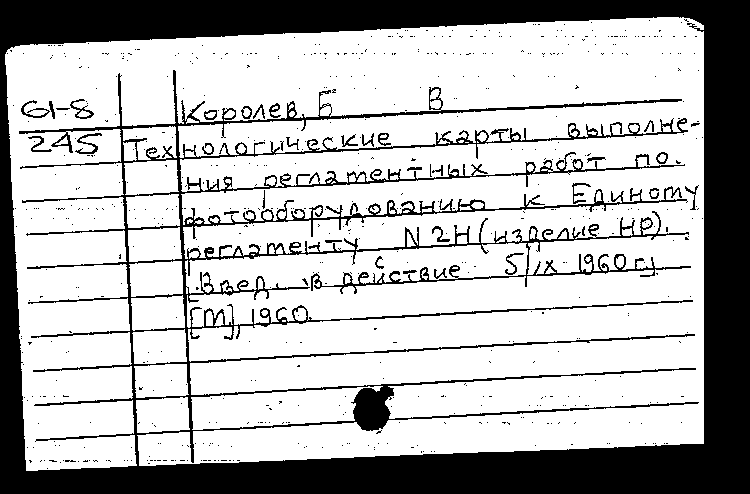 61-8 Королев, Б В
245 Технологические карты выполне-
ния регламентных работ по.
фотооборудованию к Единому
регламенту N 2Н (изделие НР).
[Введ. в действие 5/ix 1960 г]
[М], 1960.